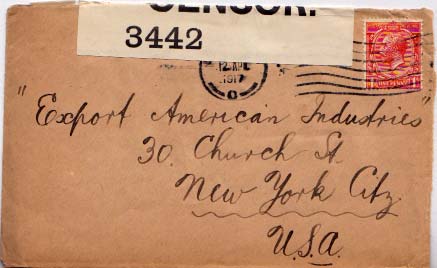 CENSOR.
3442
12 APL
1917
ONE PENNY
"Export American Industries"
30. Church St.
New York City
U.S.A.